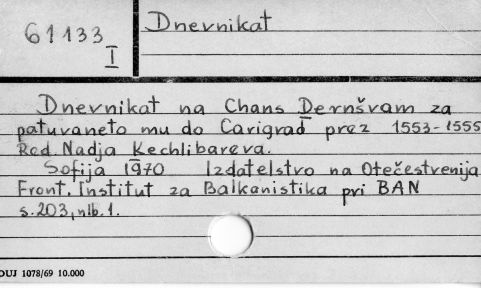 61133
I
Dnevnikat
Dnevnikat na Chans Dernšvam za
patuvaneto mu do Carigrad prez 1553-1555
Red. Nadja Kechlibareva.
Sofija 1970 Izdatelstvo na Otečestvenija
Front. Institut za Balkanistika pri BAN
s. 203, nlb. 1.
OUJ 1078/69 10.000